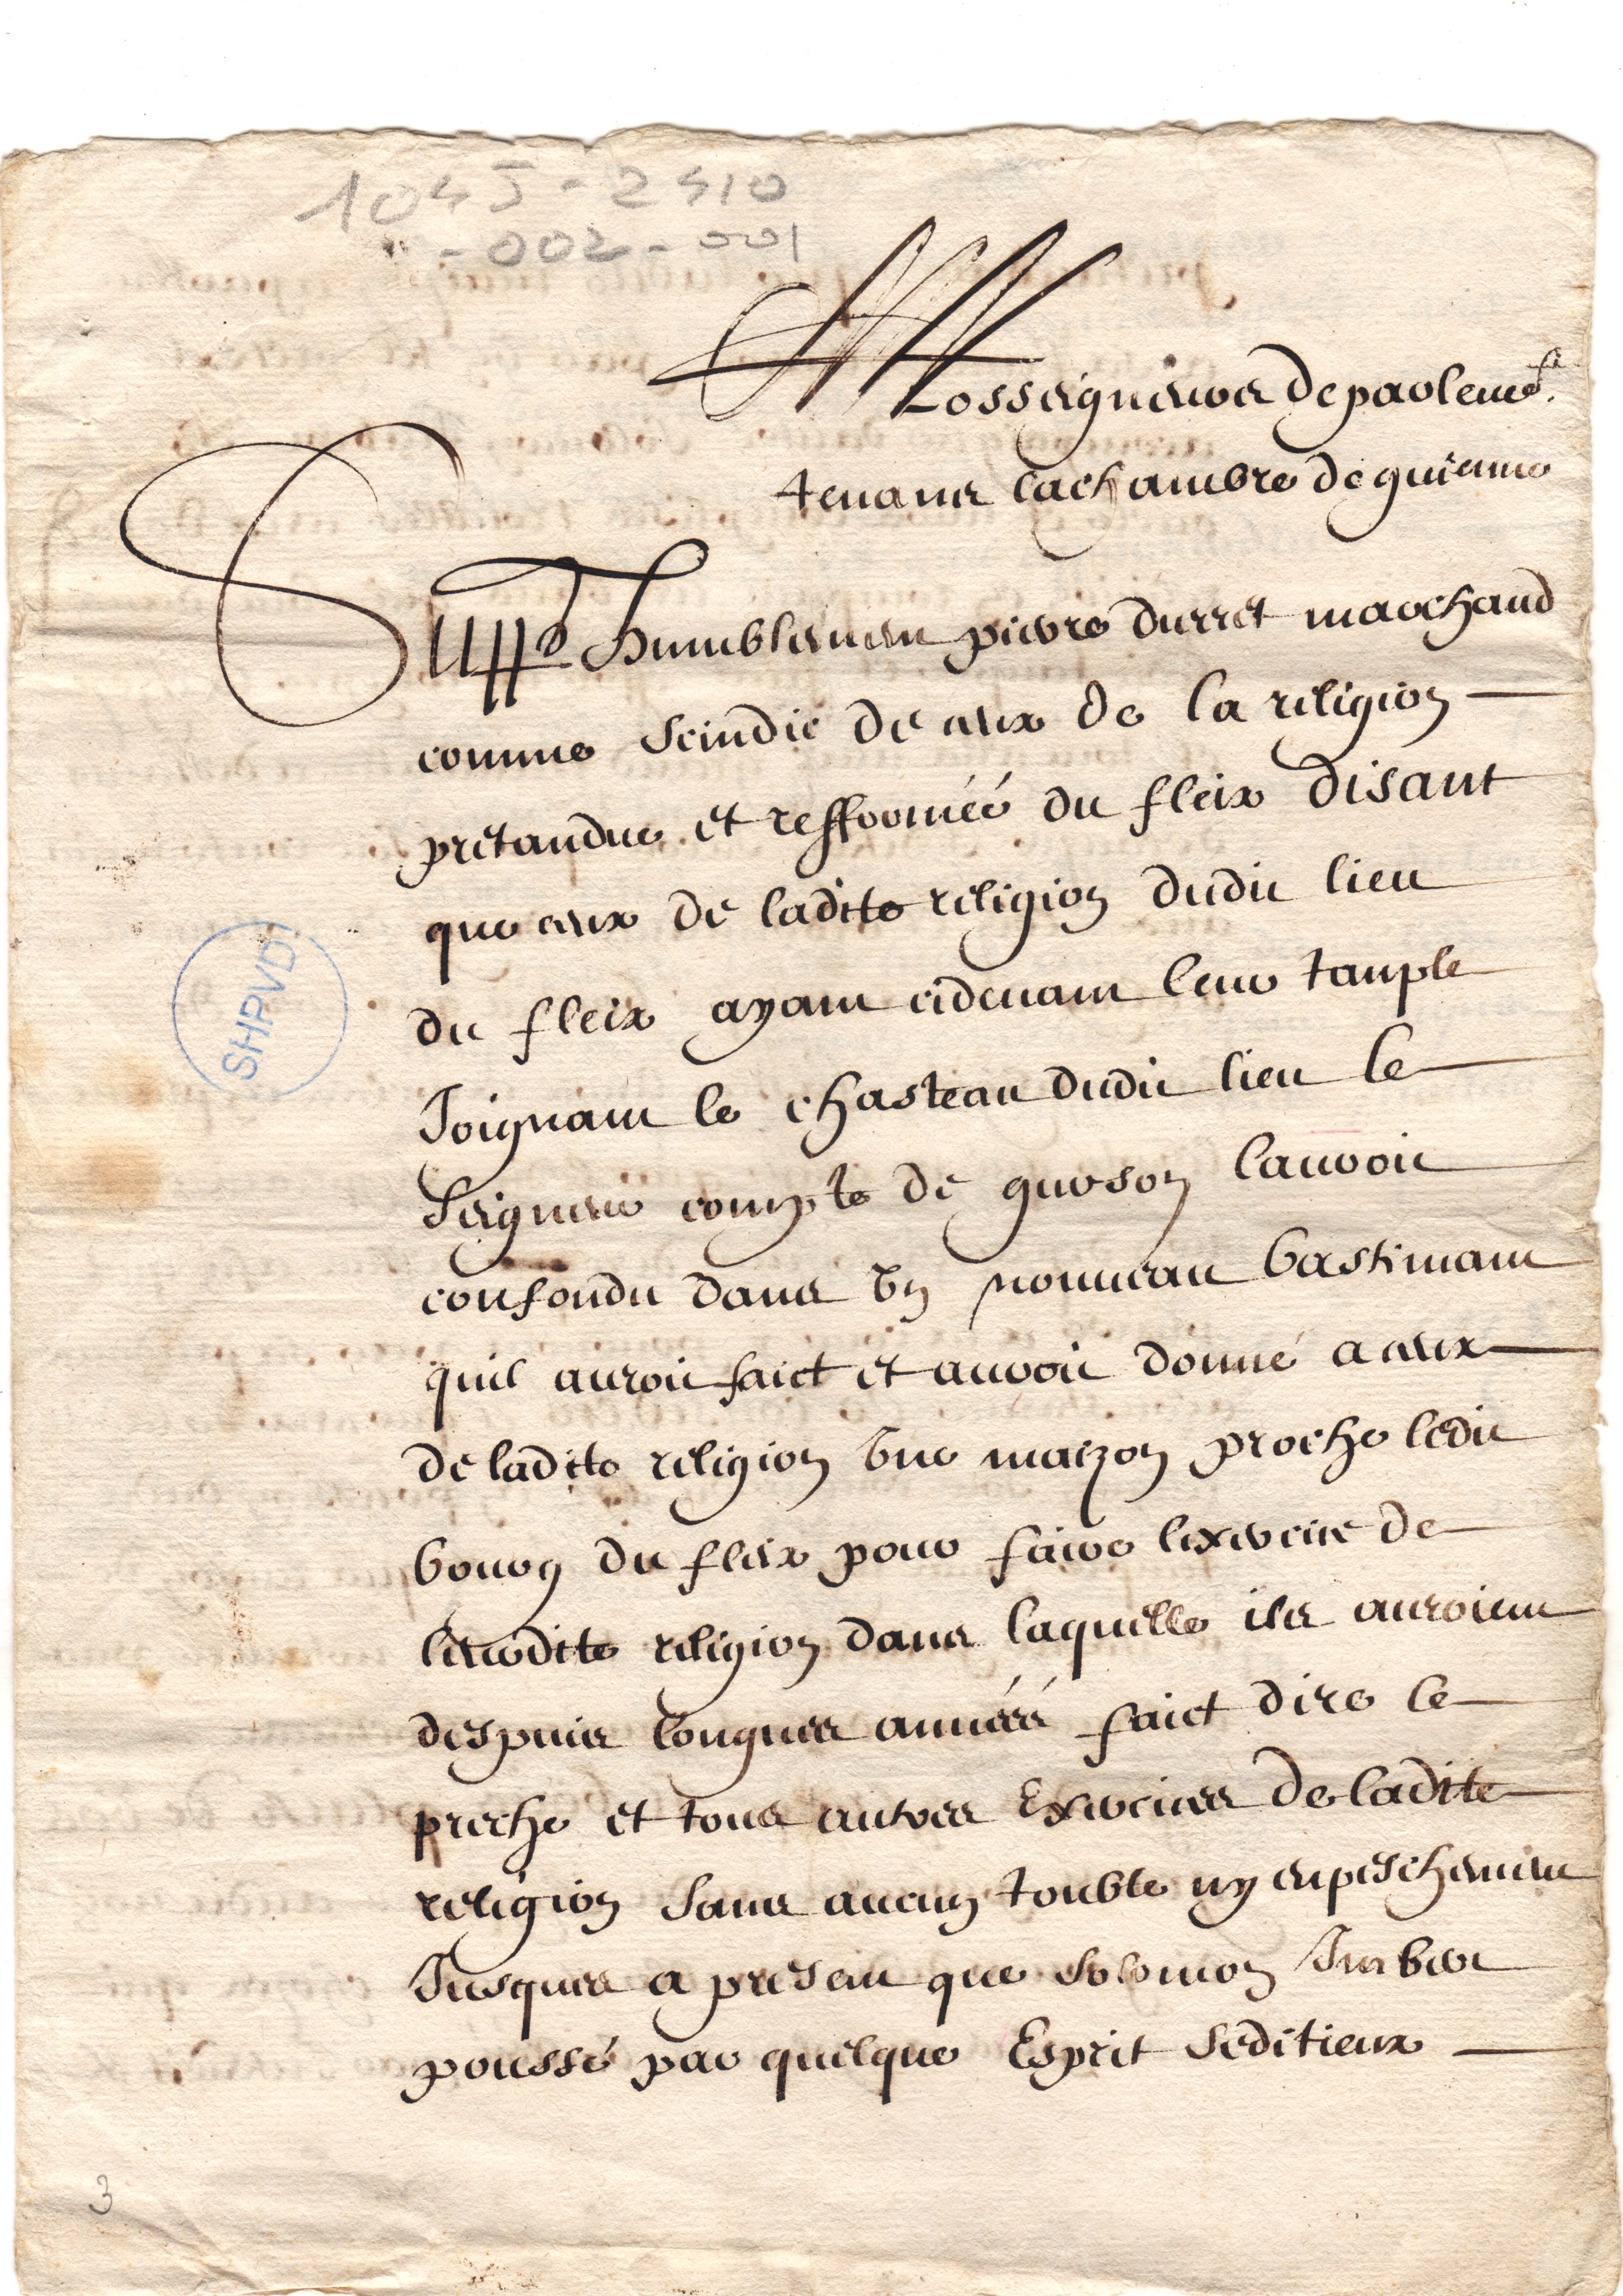 104J-2410
" - 002 - 001
A Nosseigneurs de parlemet
tenans la chambre de guienne
Supplie humblement pierre durret marchand
comme scindic de ceux de la religion
pretandue et refformée du fleix disant
que ceux de ladite religion dudit lieu
du fleix ayant cidevant leur tanple
Joignant le chasteau dudit lieu le
seigneur compte de gurson lauroit
confondu dans un nouueau bastimant
quil auroit faict et auroit donné a ceux
de ladite religion une maizon proche ledit
bourg du fleix pour faire lexercice de
leurdite religion dans laquelle ils auroient
despuis longues années faict dire le
preche et tous autres Exercices de ladite
religion sans aucun touble ny enpeschement
Jusques a present que solomon Jmbert
poussé par quelque Esprit seditieux
SHPVD
3